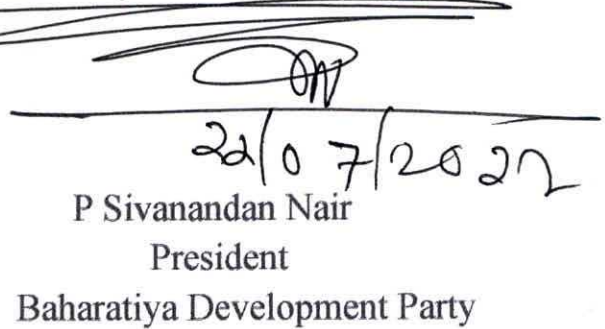 22/07/2022
P Sivanandan Nair
President
Baharatiya Development Party